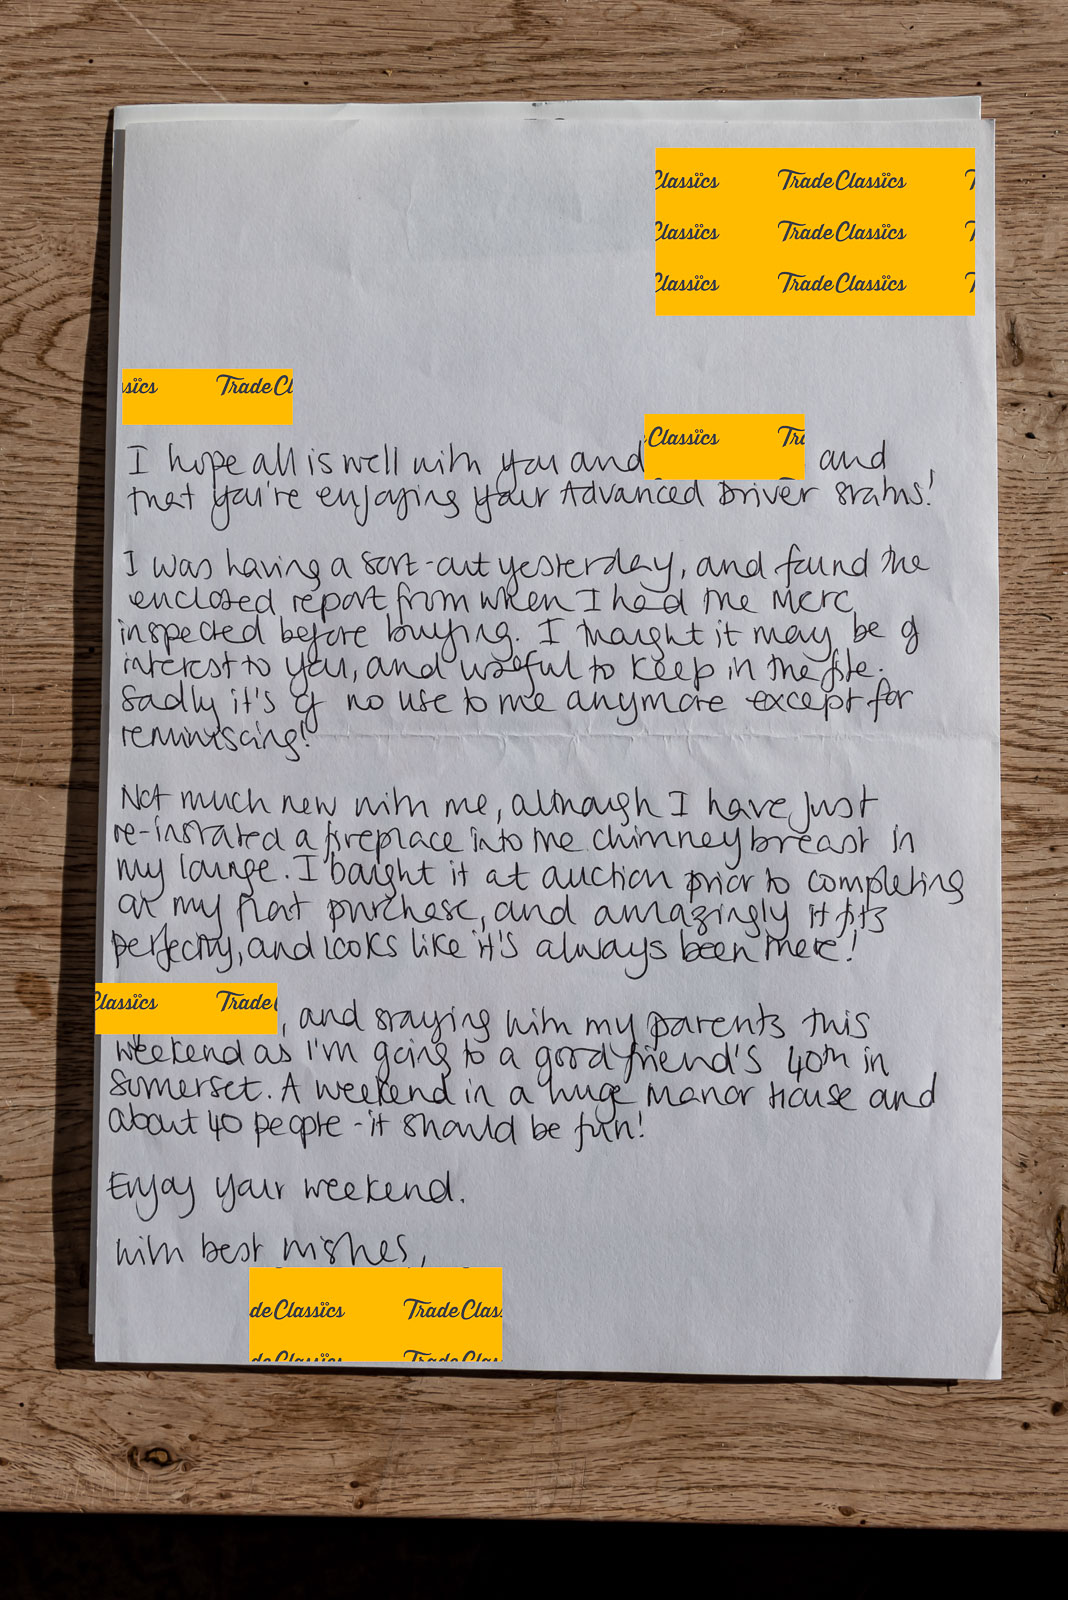 Classics TradeClassics
Classics TradeClassics
Classics TradeClassics
TradeCl
Classics
I hope all is well with you and and
that you're enjoying your Advanced Driver status!
I was having a sort-out yesterday, and found the
enclosed report from when I had the Merc
inspected before buying. I thought it may be of
interest to you, and useful to keep in the file.
Sadly it's of no use to me anymore except for
reminiscing!
Not much new with me, although I have just
re-instated a fireplace into the chimney breast in
my lounge. I bought it at auction prior to completing
on my flat purchase, and amazingly it fits
perfectly, and looks like it's always been there!
Classics Trade
, and staying with my parents this
weekend as I'm going to a good friend's 40th in
Somerset. A weekend in a huge Manor House and
about 40 people - it should be fun!
Enjoy your weekend.
With best wishes,
de Classics TradeClas
de Classics TradeClas